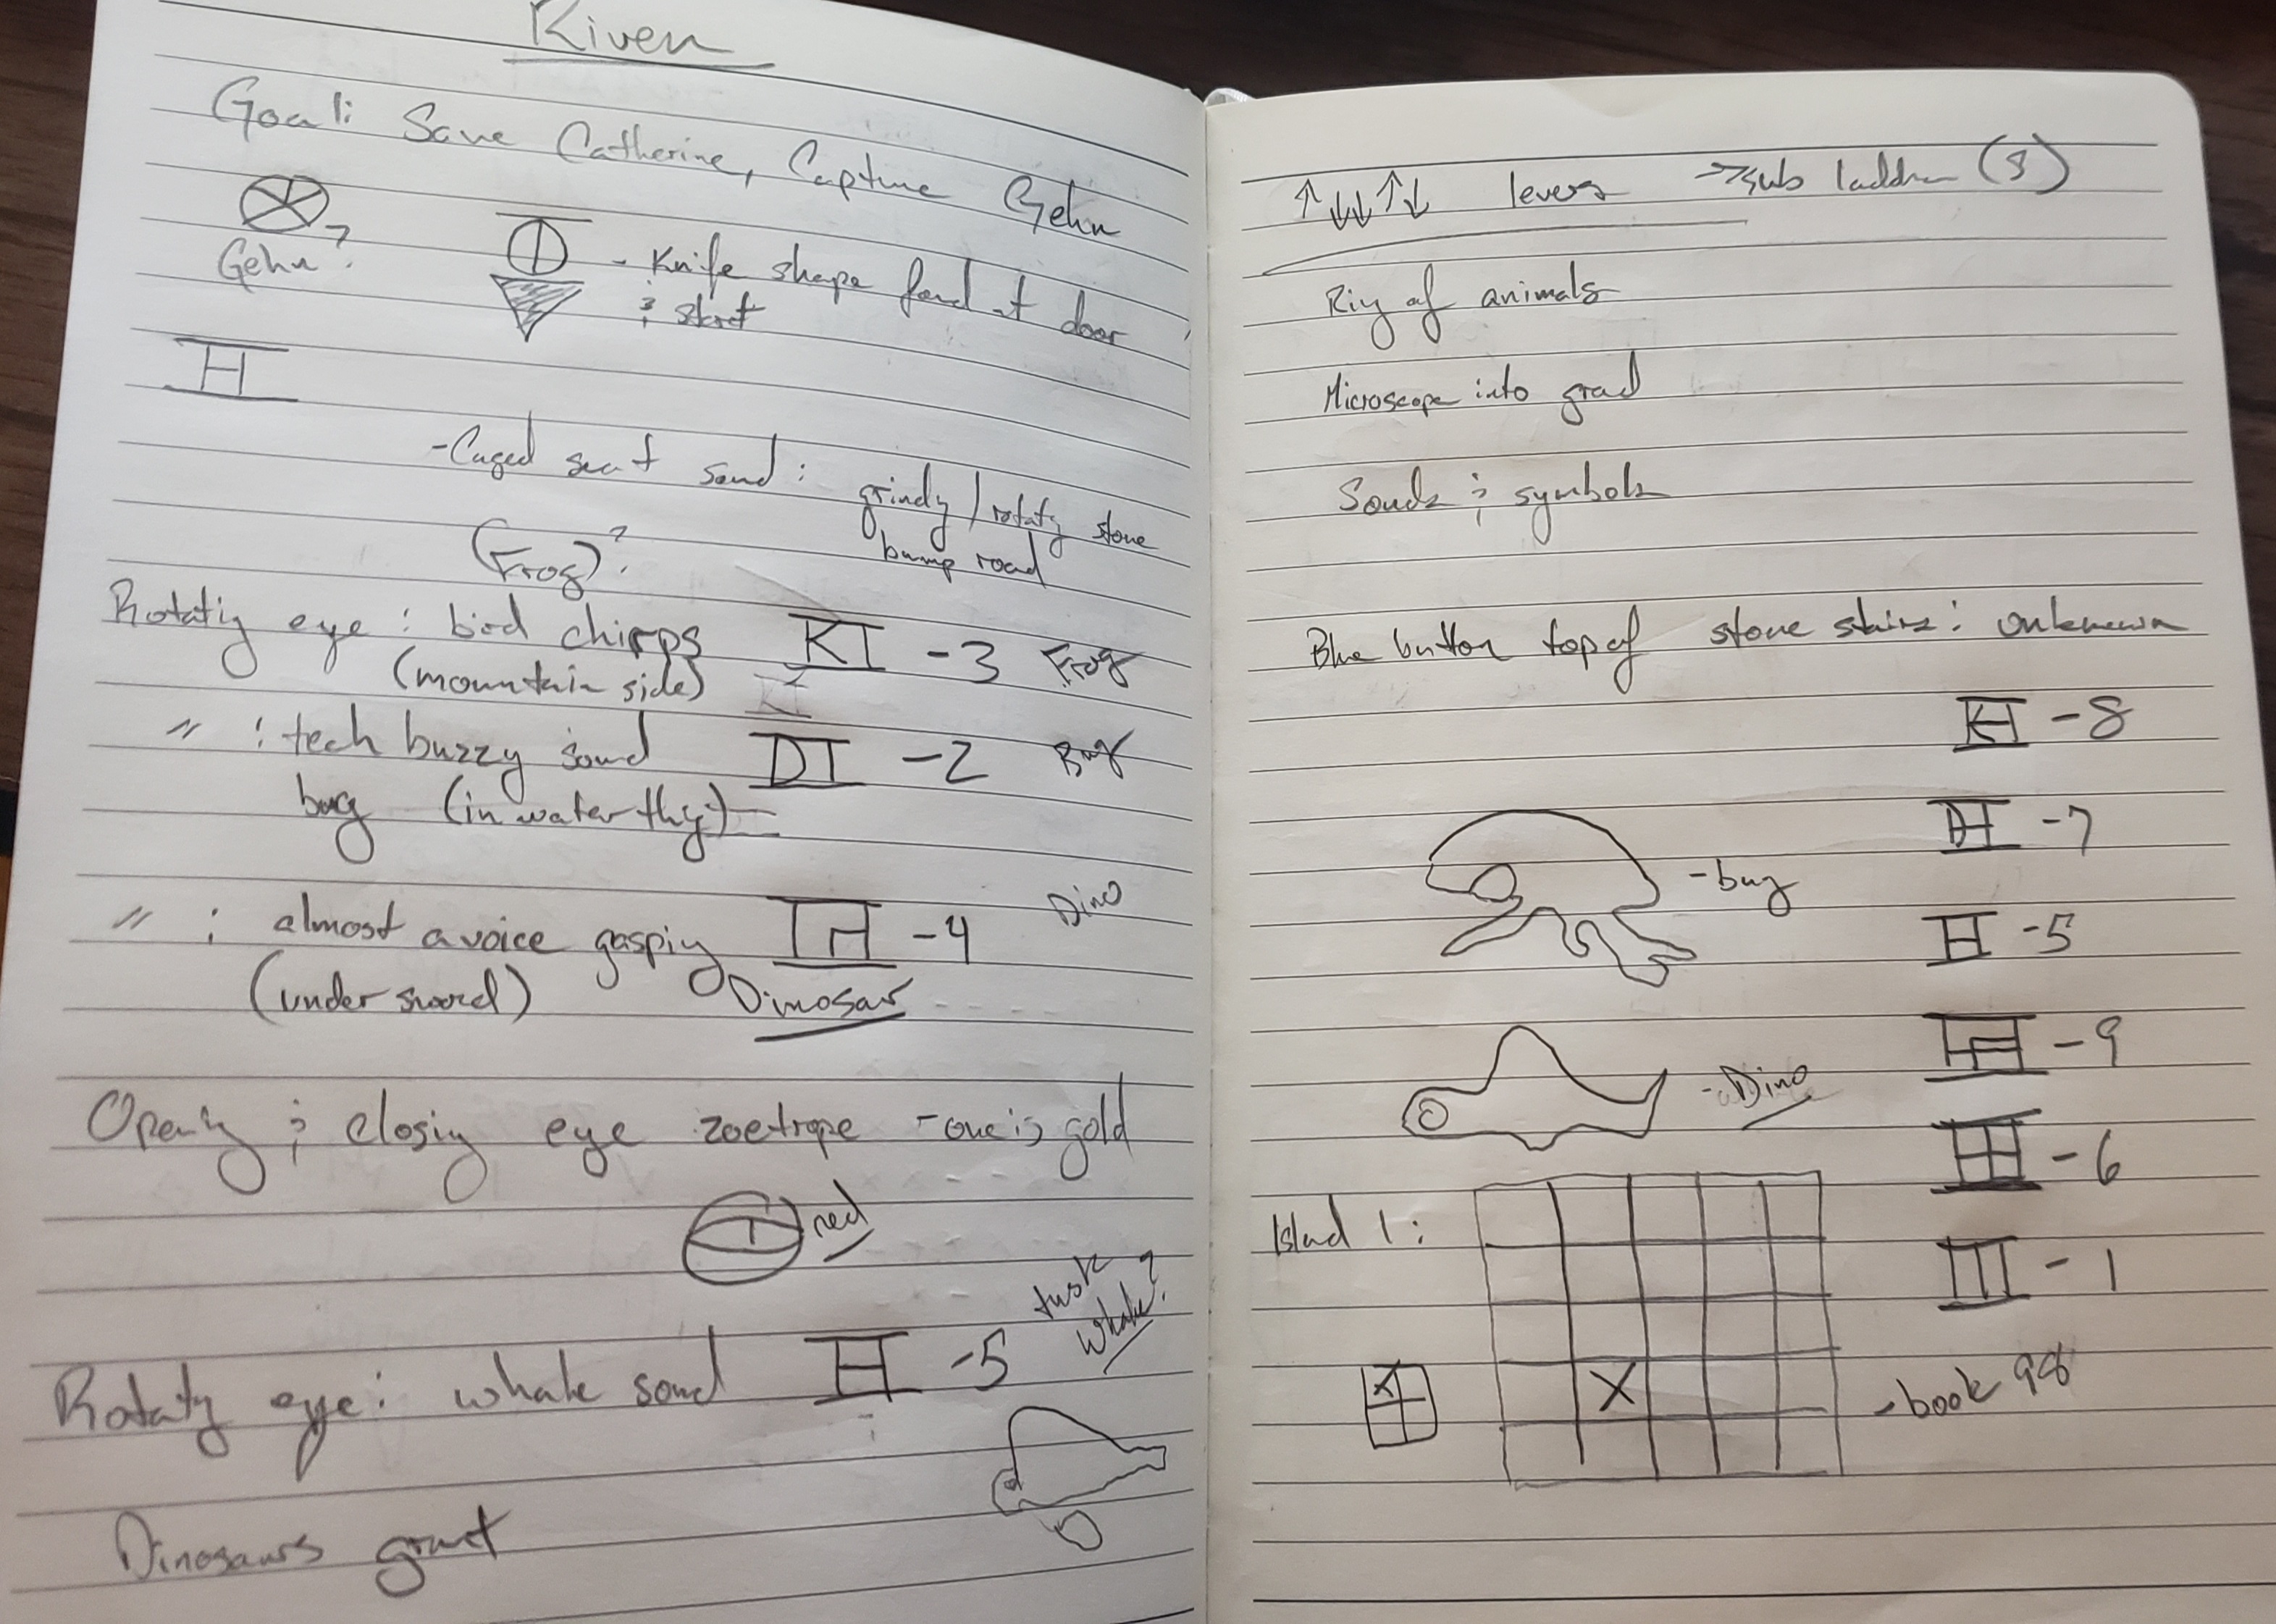 Riven
Goal: Save Catherine, Capture Gehn
Gehn?
- Knife shape found at door
& start
- Caged seat sound: grindy / rotaty stone
bump road
(Frog)?
Rotatig eye: bird chirps
(mountain side)
-3 Frog
" : tech buzzy sound
-2 Bug
bug (in water thg)
" : almost a voice gaspig
-4 Dino
(under sword)
Dinosaur
Openig & closig eye zoetrope - one is gold
red
tusk
whale?
Rotatig eye: whale sound
-5
Dinosaurs grunt
↑↓↓↑↓ levers → sub ladder (3)
Rig of animals
Microscope into
Sounds & symbols
Blue button top of stone stairs: unknown
-8
-7
- bug
-5
-9
- Dino
-6
Island 1:
-1
X
X
- book 98